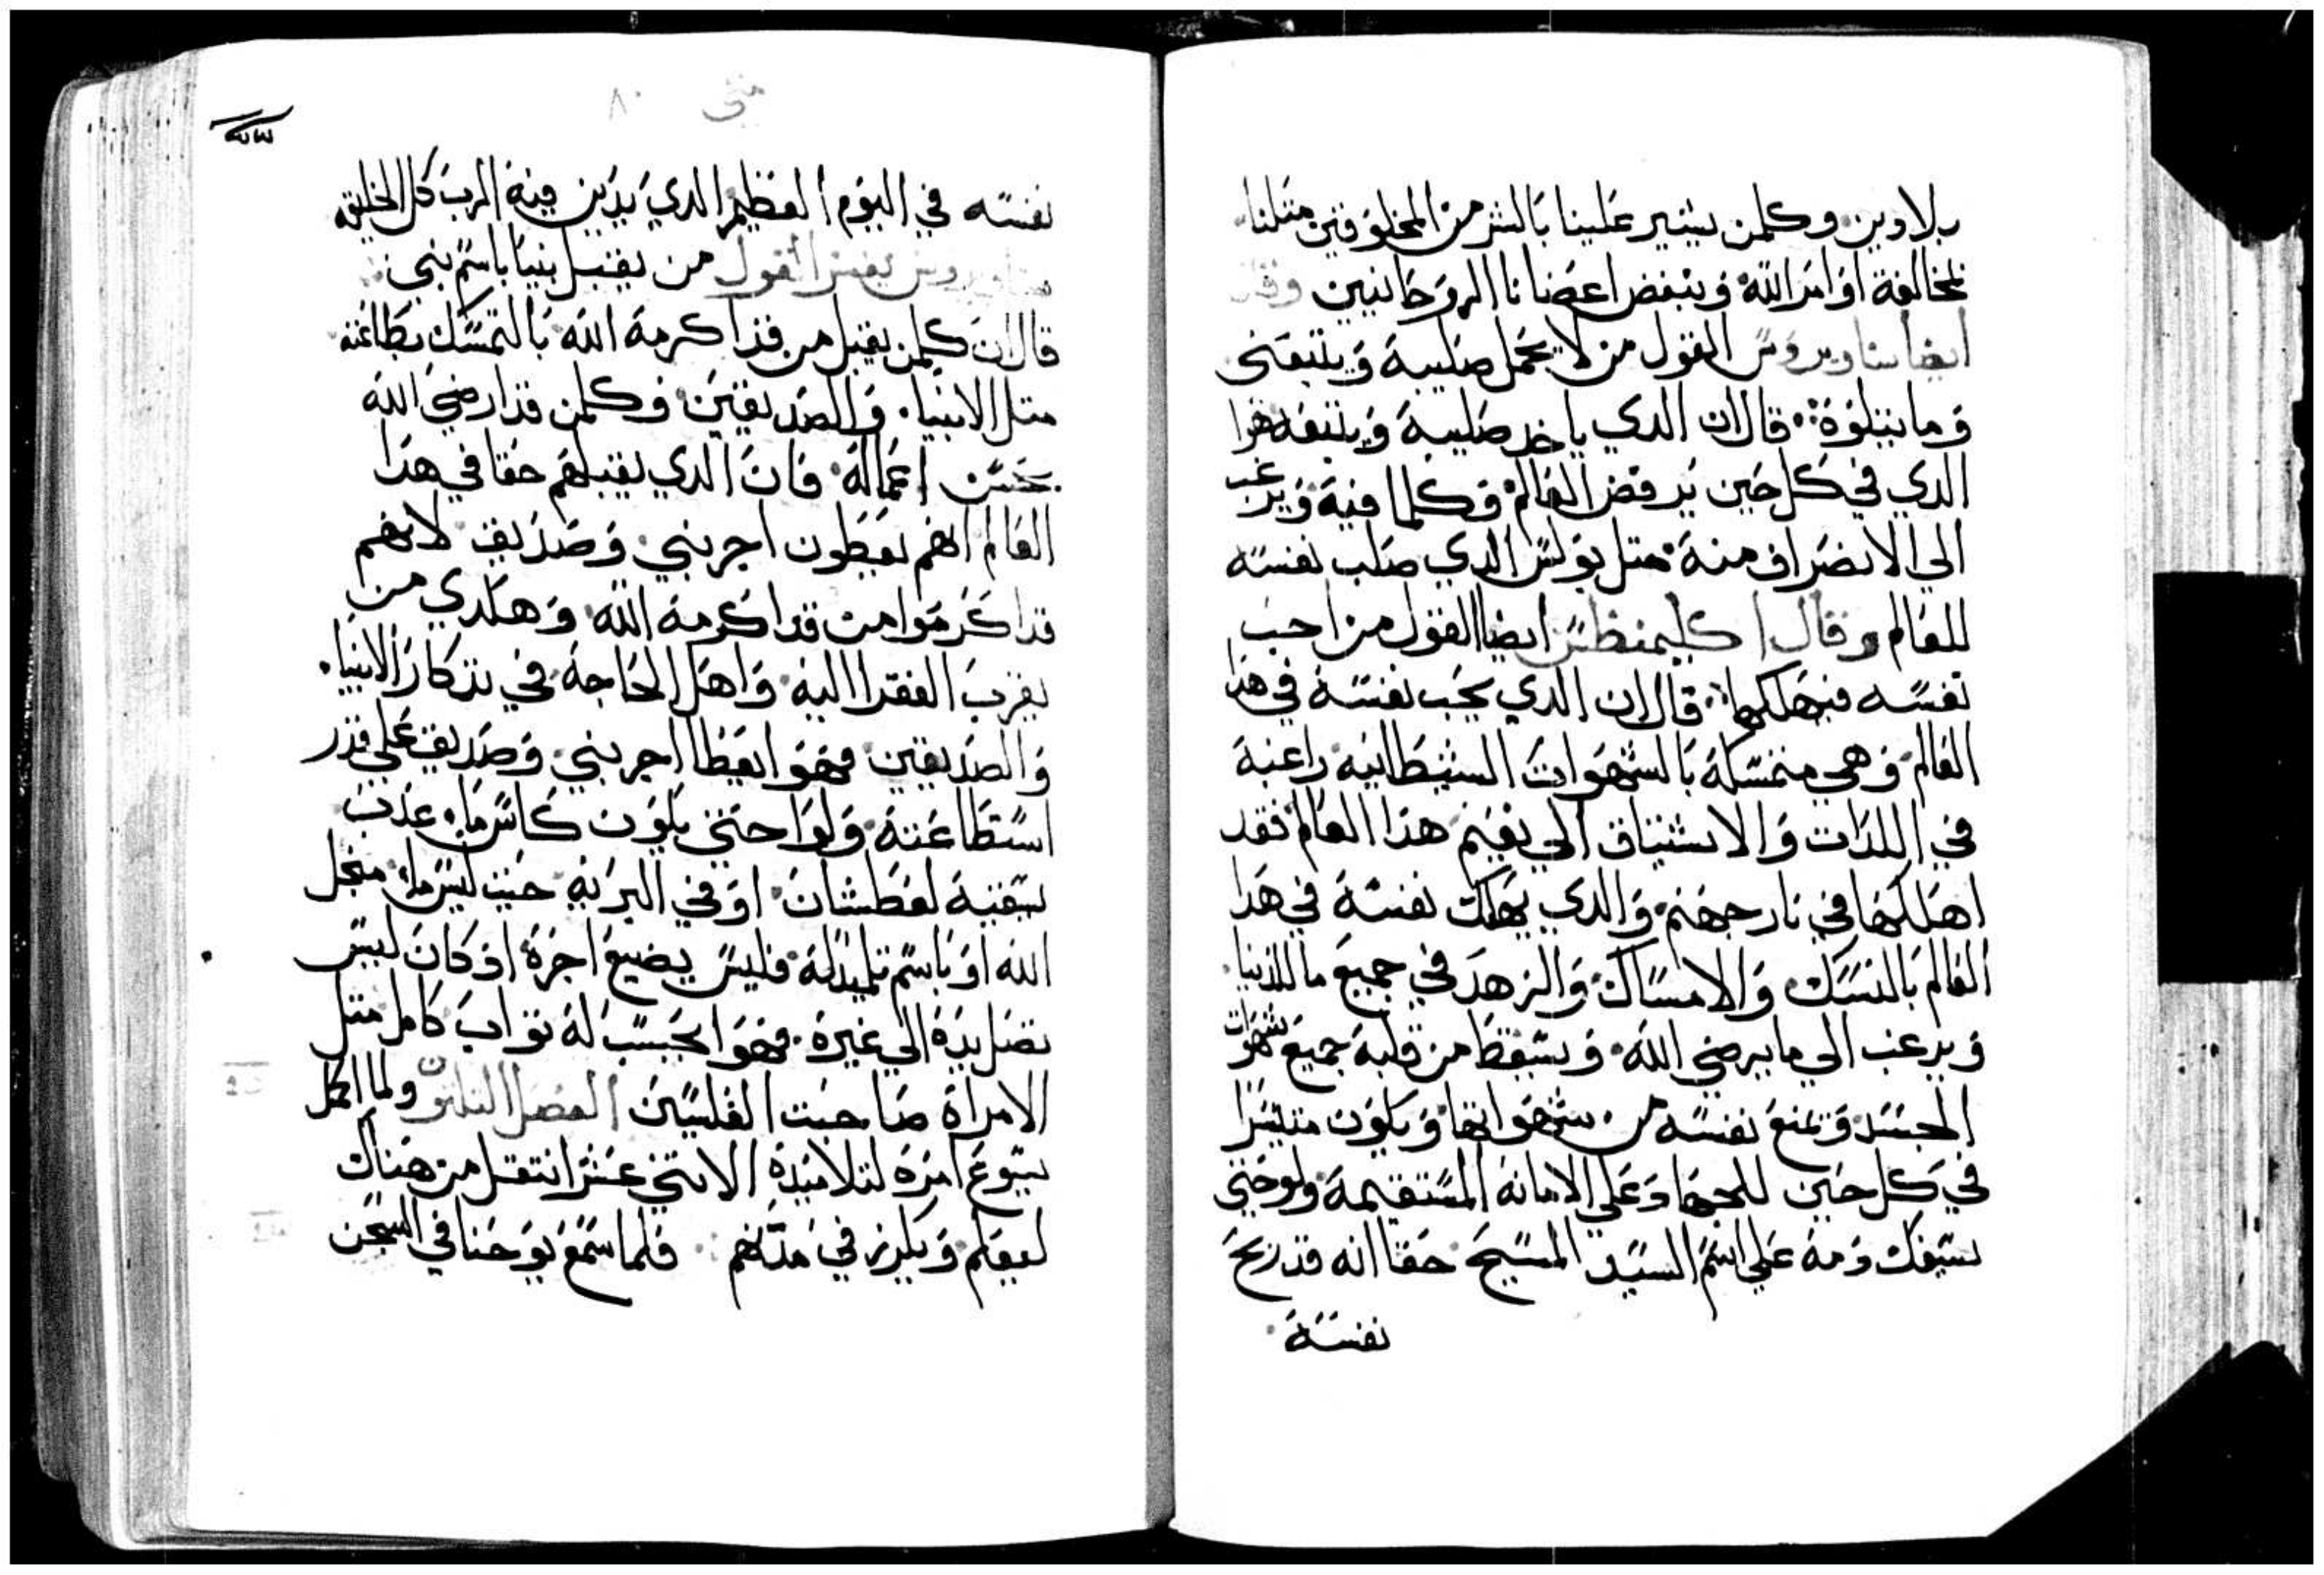 بلا دين وكلمن يشير علينا بالشر من المخلوقين مثلنا
لمخالفة اوامر الله وينغض اعضانا الروحانيين وقال
ايضا ساويروس القول من لا يحمل صليبه ويتبعني
وما يتلوة قال ان الدي ياخد صليبه ويتبعه هوا
الدي في كل حين يرفض العالم وكلما فيه ويرغب
الي الانصراف منه متل بولس الدي صلب نفسه
للعالم وقال اكليمنطس ايضا القول من احب
نفسه فيهلكها قال ان الدي يحب نفسه في هدا
العالم وهي متمسكه بالشهوات الشيطانيه راغبة
في اللدات والاشتياق الي نعيم هدا العالم فقد
اهلكها في نار جهنم والدي يهلك نفسه في هدا
العالم بالنسك والامساك والزهد في جميع ما للدنيا
ويرغب الي ما يرضي الله ويسقط من قلبه جميع شهوات
الجسد ويمنع نفسه من شهواتها ويكون متيسرا
في كل حين للجهاد علي الامانه المستقيمة ولو حتي
يسفك دمه علي اسم السيد المسيح حقا انه قد ربح
نفسه
متي ٨٠
نفسه في اليوم العظيم الدي يدين فيه الرب كل الخليقه
ساويروس يفسر القول من يقبل نبيا باسم نبي
قال ان كلمن يقبل من قد اكرمه الله بالتمسك بطاعته
متل الانبيا والصديقين وكلمن قد ارضي الله
بحسن اعماله فان الدي يقبلهم حقا في هدا
العالم انهم يعطون اجر نبي وصديق لانهم
قد اكرموا من قد اكرمه الله وهكدي من
يقرب الفقرا اليه واهل الحاجة في تدكار الانبيا
والصديقين فهو ايعطا اجر نبي وصديق علي قدر
استطاعته ولوا حتي يكون كاس ما عدب
يسقيه لعطشان او في البريه حيت ليس ما منجل
الله او باسم تلميدله فليس يضيع اجره اد كان ليس
تصل يده الي غيره فهوا يحسب له تواب كامل متل
الامراة صاحبت الفلسين الفصل التلتون ولما اكمل
يسوع امره لتلاميده الاتني عشر انتقل من هناك
ليعلم ويكرز في مدنهم فلما سمع يوحنا في السجن